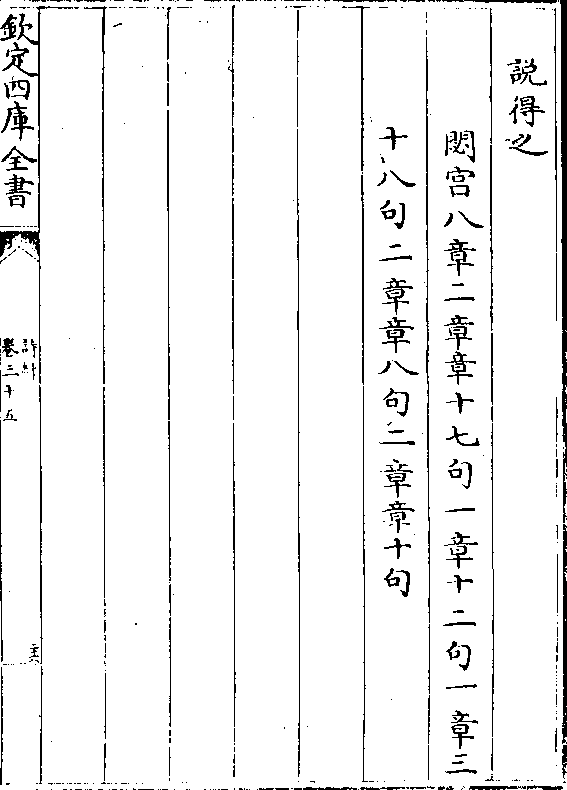 説得之
閟宫八章二章章十七句一章十二句一章三
十八句二章章八句二章章十句
欽定四庫全書
詩緝
卷三十五